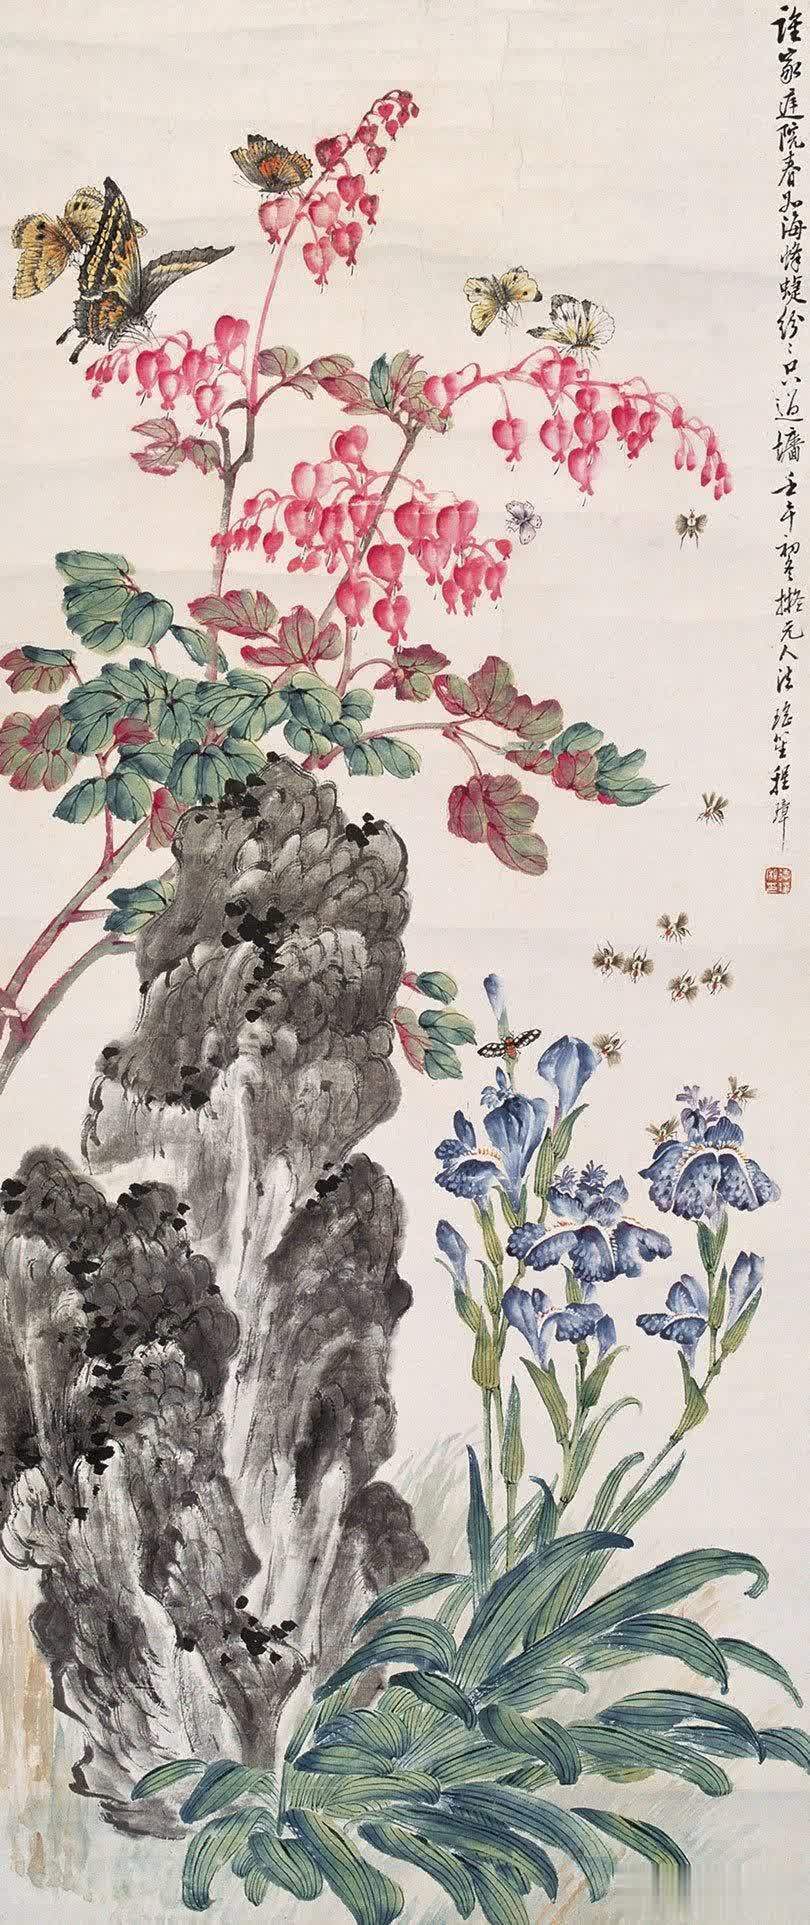 谁家庭院春如海蜂蜨纷〻只过墙壬午初冬拟元人法瑶笙程璋